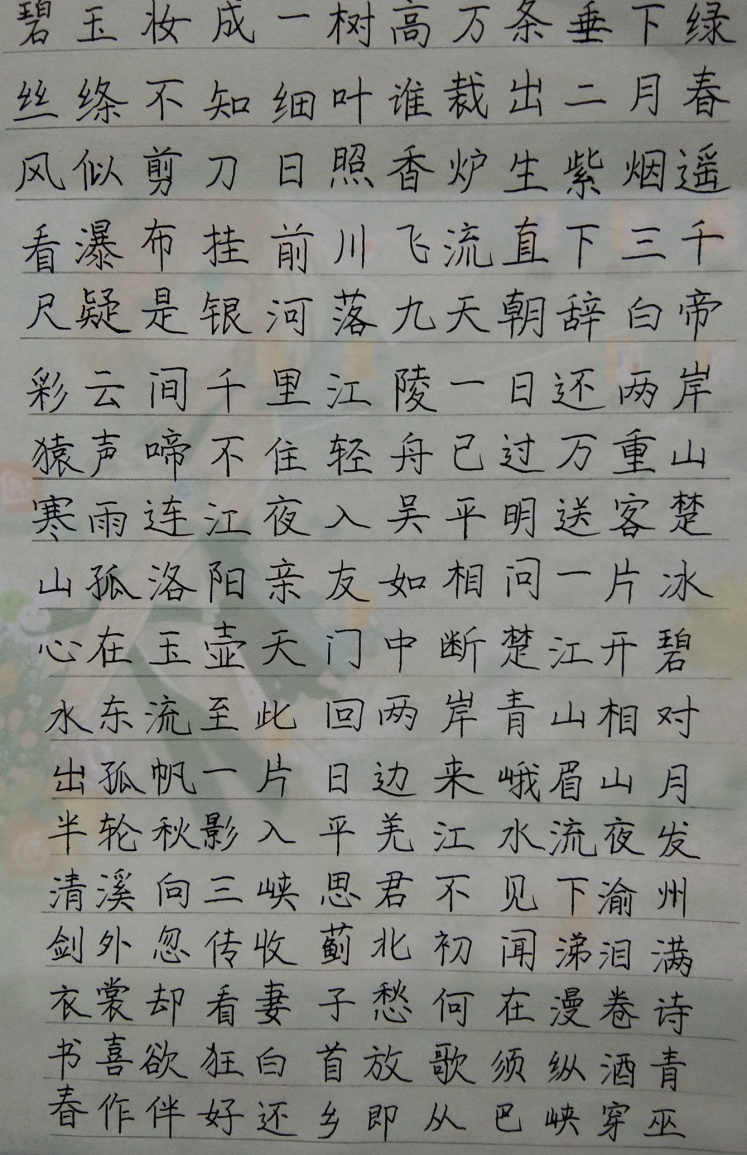 碧玉妆成一树高万条垂下绿
丝绦不知细叶谁裁出二月春
风似剪刀日照香炉生紫烟遥
看瀑布挂前川飞流直下三千
尺疑是银河落九天朝辞白帝
彩云间千里江陵一日还两岸
猿声啼不住轻舟已过万重山
寒雨连江夜入吴平明送客楚
山孤洛阳亲友如相问一片冰
心在玉壶天门中断楚江开碧
水东流至此回两岸青山相对
出孤帆一片日边来峨眉山月
半轮秋影入平羌江水流夜发
清溪向三峡思君不见下渝州
剑外忽传收蓟北初闻涕泪满
衣裳却看妻子愁何在漫卷诗
书喜欲狂白首放歌须纵酒青
春作伴好还乡即从巴峡穿巫